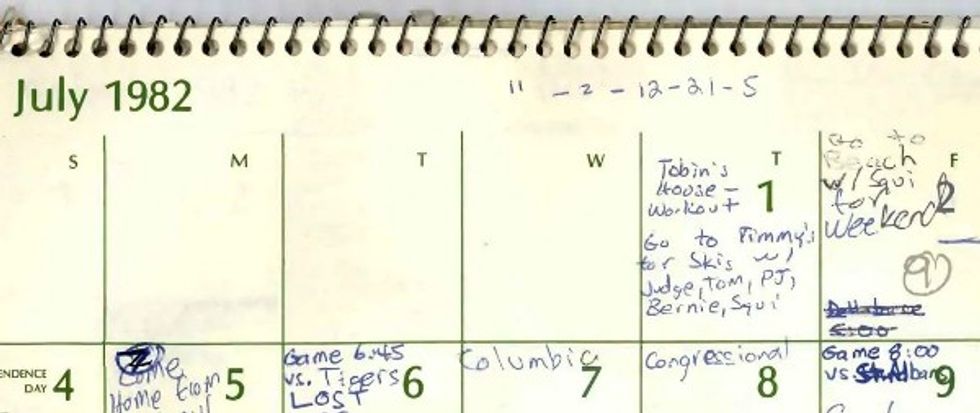 July 1982
" - 2 - 12 - 21 - 5
S M T W T F
Tobin's
House -
Workout
1
Go to Timmy's
for Skis w/
Judge, Tom, PJ,
Bernie, Squi
Go to
Beach
w/ Squi
for
Weekend
2
9
6:00
ENDENCE
DAY 4
Come
Home from
5
Game 6:45
vs. Tigers
LOST
6
Columbia
7
Congressional
8
Game 8:00
vs. St. Albans
9